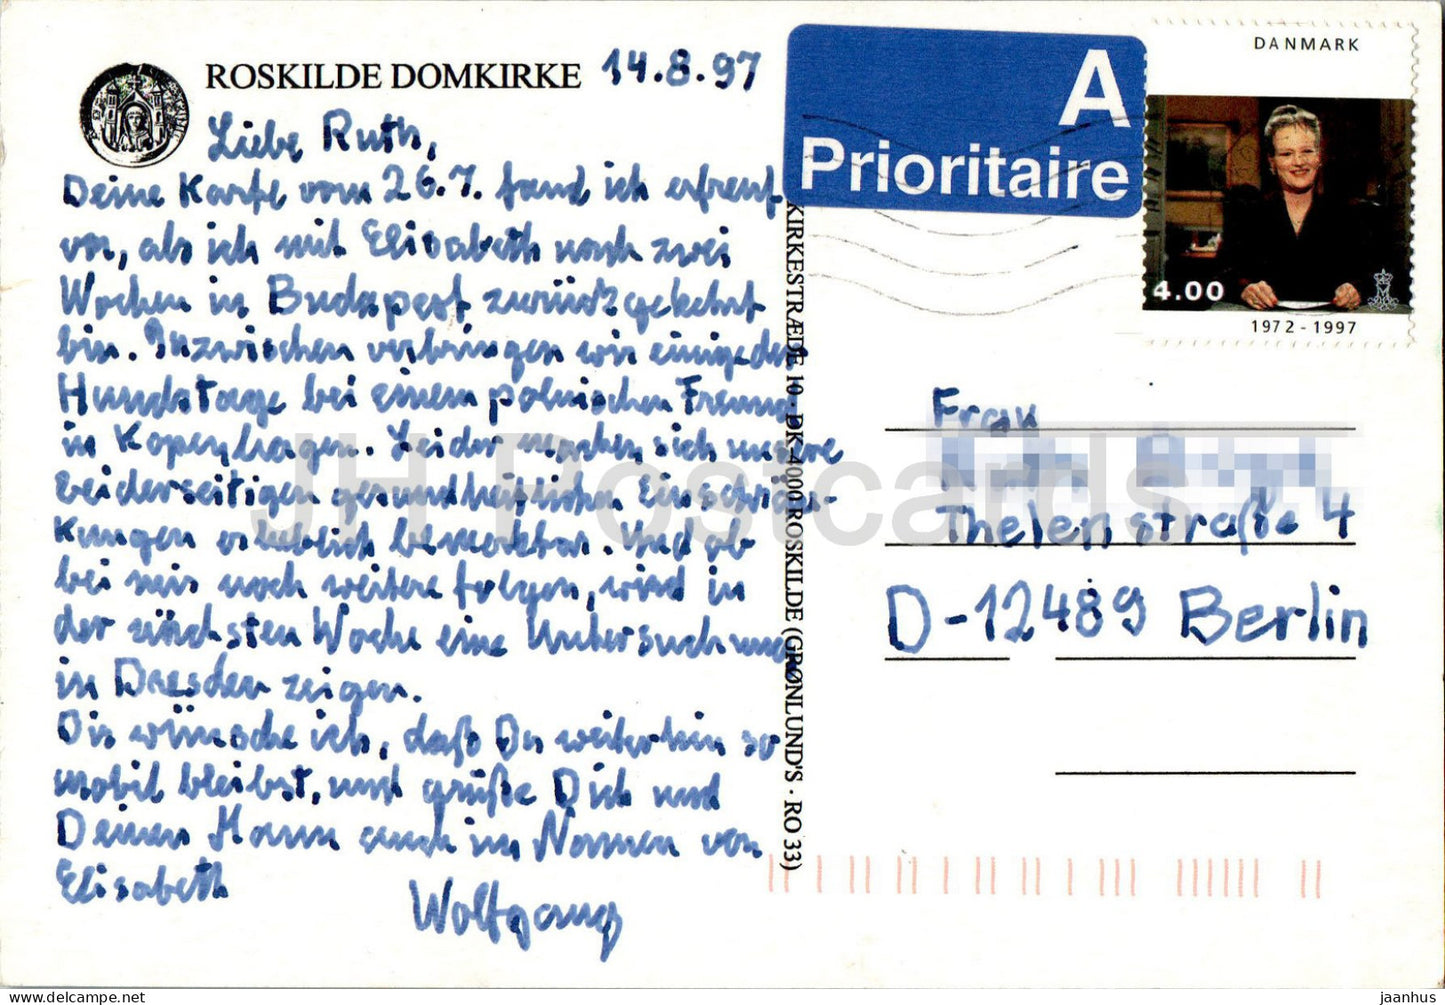 ROSKILDE DOMKIRKE 14.8.97
Liebe Ruth,
Deine Karte vom 26.7. fand ich erfreut
vor, als ich mit Elisabeth nach zwei
Wochen in Budapest zurückgekehrt
bin. Inzwischen verbringen wir einige der
Hundstage bei einem polnischen Freund
in Kopenhagen. Leider machen sich unsere
beiderseitigen gesundheitlichen Einschrän-
kungen erheblich bemerkbar. Und ob
bei mir noch weitere folgen, wird in
der nächsten Woche eine Untersuchung
in Dresden zeigen.
Dir wünsche ich, daß Du weiterhin so
mobil bleibst, und grüße Dich und
Deinen Mann auch im Namen von
Elisabeth
Wolfgang
KIRKESTRÆDE 10 · DK-4000 ROSKILDE (GRØNLUND'S · RO 33)
A
Prioritaire
DANMARK
4.00
1972 - 1997
Frau
Thelenstraße 4
D-12489 Berlin
JH Postcards
https://www.ebay.de/str/jhpostcards
jaanhus